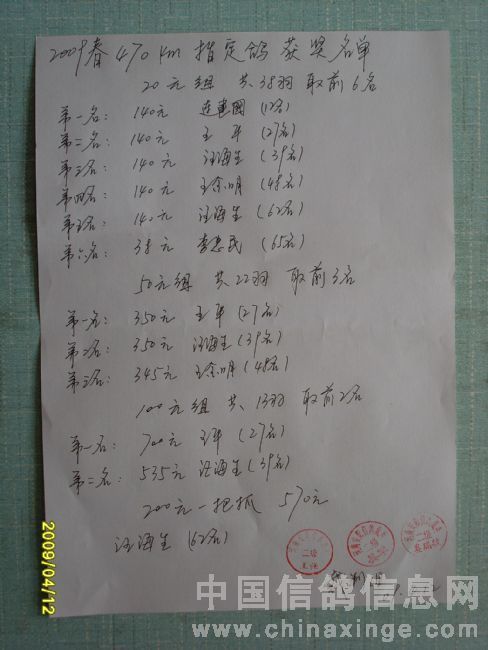 2009春470km指定鸽获奖名单
20元组 共38羽 取前6名
第一名: 140元 连建国 (12名)
第二名: 140元 王军 (27名)
第三名: 140元 汪海生 (39名)
第四名: 140元 王金明 (48名)
第五名: 140元 汪海生 (62名)
第六名: 38元 李忠民 (65名)
50元组 共22羽 取前3名
第一名: 350元 王军 (27名)
第2名: 350元 汪海生 (39名)
第三名: 345元 王金明 (48名)
100元组 共13羽 取前2名
第一名: 700元 王军 (27名)
第二名: 535元 汪海生 (39名)
200元一把抓 570元
汪海生 (62名)
二级
二级
二级
2009/04/12
中国信鸽信息网
www.chinaxinge.com